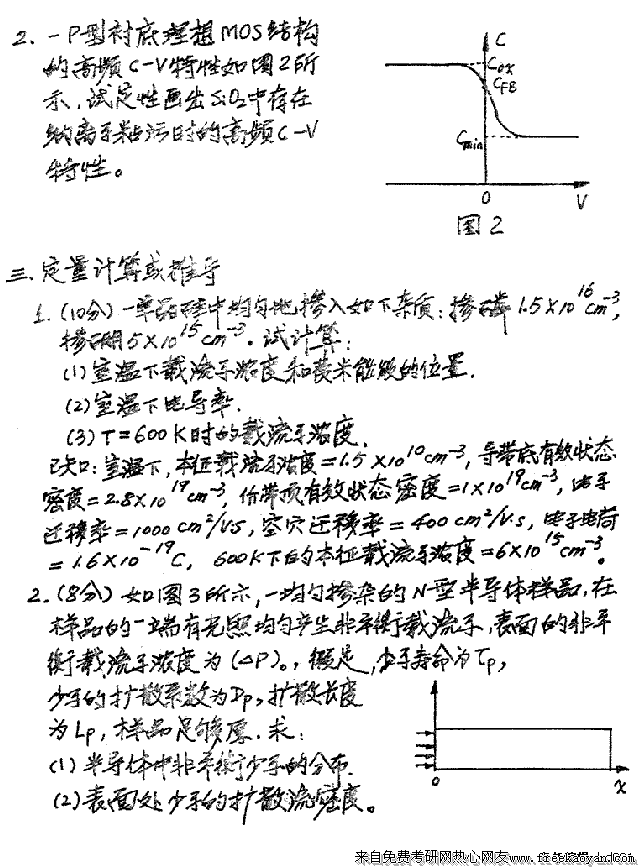 2. 一P型衬底理想MOS结构
的高频C-V特性如图2所
示,试定性画出SiO2中存在
钠离子粘污时的高频C-V
特性。
C
Cox
CFB
Cmin
0
V
图2
三.定量计算或推导
1. (10分)一单晶硅中均匀地掺入如下杂质:掺磷 1.5×10^16 cm^-3,
掺硼5×10^15 cm^-3。试计算:
(1)室温下载流子浓度和费米能级的位置.
(2)室温下电导率.
(3) T=600K时的载流子浓度.
已知:室温下,本征载流子浓度=1.5×10^10 cm^-3,导带底有效状态
密度=2.8×10^19 cm^-3,价带顶有效状态密度=1×10^19 cm^-3,电子
迁移率=1000 cm^2/V.S,空穴迁移率=400 cm^2/V.S,电子电荷
=1.6×10^-19 C, 600K下的本征载流子浓度=6×10^15 cm^-3。
2. (8分) 如图3所示,一均匀掺杂的N-型半导体样品,在
样品的一端有光照均匀产生非平衡载流子,表面的非平
衡载流子浓度为(ΔP)0,假定,少子寿命为τp,
少子的扩散系数为Dp,扩散长度
为Lp,样品足够厚.求:
(1) 半导体中非平衡少子的分布.
(2) 表面处少子的扩散流密度。
0
x
来自免费考研网热心网友